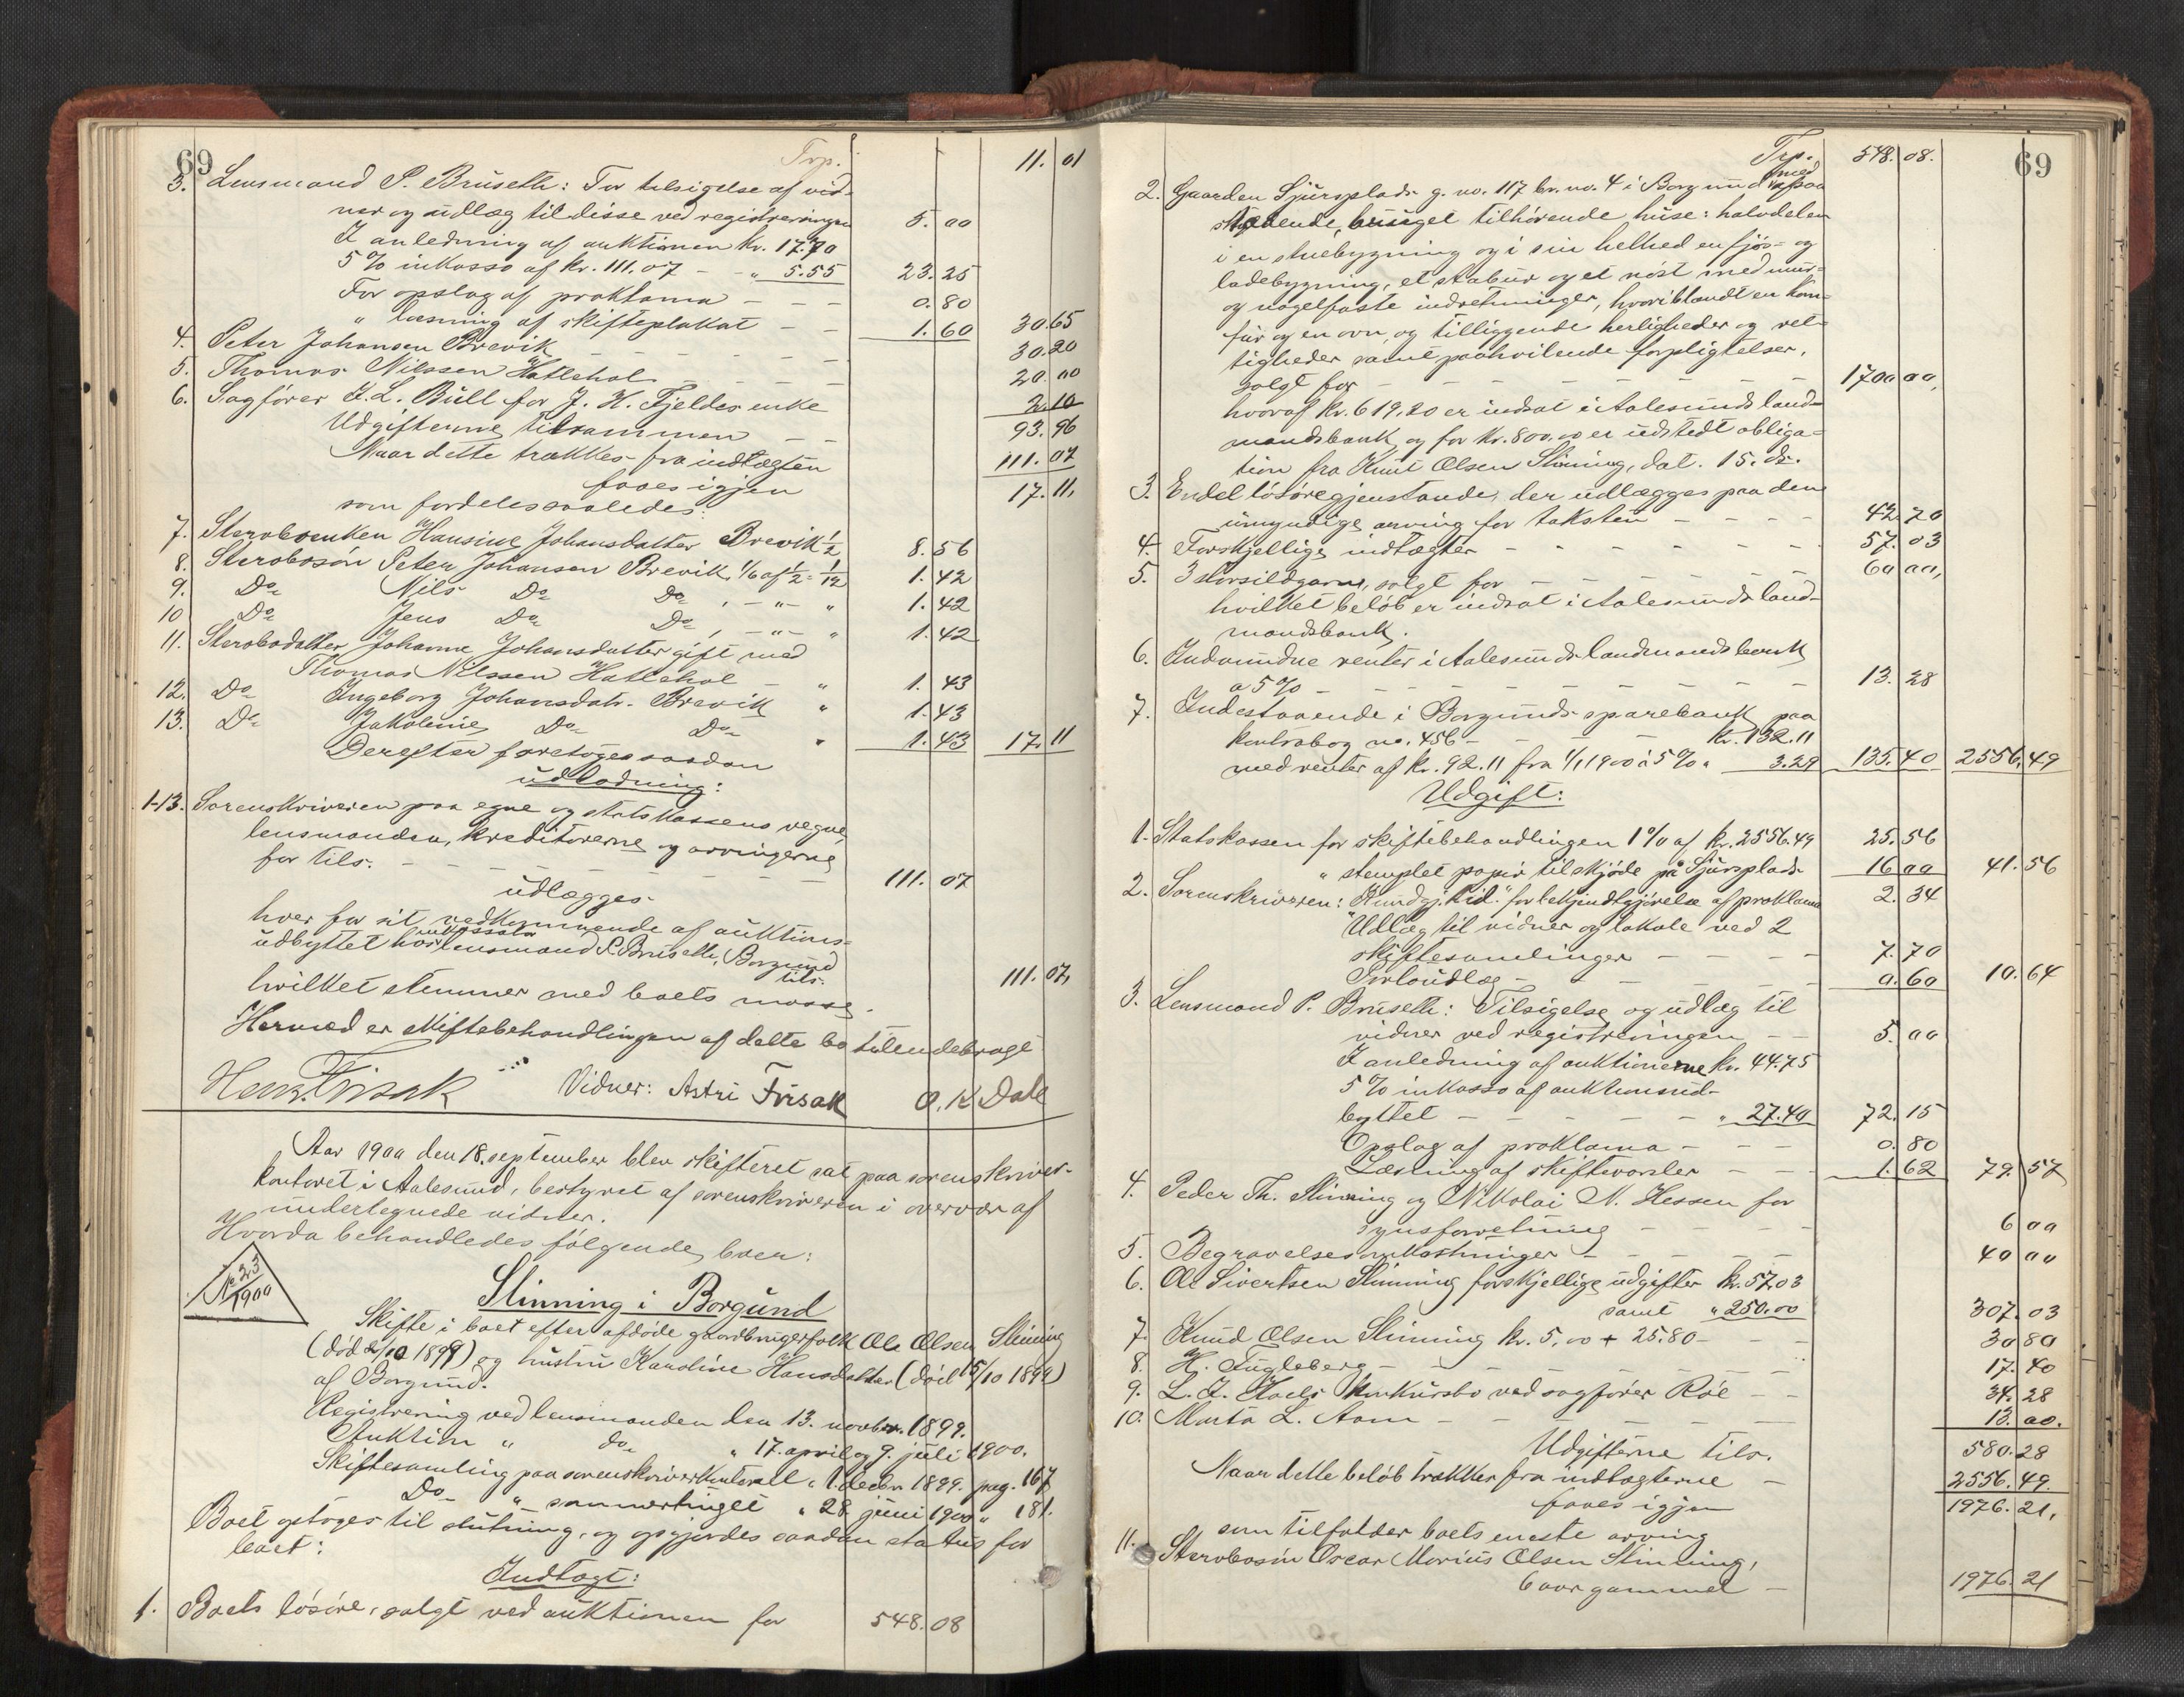 69
Trp. 11.01
3. Lensmand P. Brüseth: For tilsigelse af vid-
ner og udlæg til disse ved registreringen 5.00
I anledning af auktionen kr. 17.70
5% inkasso af kr. 111.07 - - " 5.55 23.25
For opslag af proklama - - - 0.80
" læsning af skifteplakat - - 1.60 30.65
4. Peter Johansen Brevik - - - - - 30.20
5. Thomas Nilssen Hatlehol - - - - 20.00
6. Sagfører K. L. Büll for J. H. Fjeldes enke 2.10
Udgifterne tilsammen - - 93.96
Naar dette trækkes fra indtægten 111.07
faaes igjen 17.11,
som fordeles saaledes:
7. Stervboenken Hansine Johansdatter Brevik 1/2 8.56
8. Stervbosøn Peter Johansen Brevik, 1/6 af 1/2 = 1/12 1.42
9. Do Nils Do Do, - " - " 1.42
10 Do Jens Do Do, - " - " 1.42
11. Stervbodatter Johanne Johansdatter gift med
Thomas Nilssen Hatlehol - " 1.43
12. Do Ingeborg Johansdatr. Brevik " 1.43
13. Do Jakobine Do Do " 1.43 17.11
Derefter foretoges saadan
udlodning:
1-13. Sorenskriveren paa egne og statskassens vegne,
lensmanden, kreditorerne og arvingerne
for tils. - - - - - - - 111.07
udlægges
hver for sit vedkommende af auktions-
udbyttet hos inkassator lensmand P. Brüseth, Borgund
tils. 111.07,
hvilket stemmer med boets masse.
Hermed er skiftebehandlingen af dette bo tilendebragt
Hans Firsak Vidner: Astri Firsak O. K Dale
Aar 1900 den 18. september blev skifteret sat paa sorenskriver-
kontoret i Aalesund, bestyret af sorenskriveren i overvær af
undertegnede vidner.
Hvorda behandledes følgende boer:
No 23/1900
Slinning i Borgund
Skifte i boet efter afdøde gaardbrugerfolk Ole Olsen Slinning
(død 2/10 1899) og hustru Karoline Hansdatter (død 15/10 1899)
af Borgund.
Registrering ved lensmanden den 13. novbr. 1899.
Auktion " do " 17. april og 9. juli 1900.
Skiftesamling paa sorenskriverkontoret " 1. decbr 1899. pag. 167
Do " sommertinget " 28 juni 1900 " 181.
Boet optoges til slutning, og opgjordes saadan status for
boet:
Indtægt:
1. Boets løsøre, solgt ved auktionen for 548.08
69
Trp. 548.08.
2. Gaarden Sjursplads g. no. 117 br. no. 4 i Borgund med paa
staaende, bruget tilhørende huse: halvdelen
i en stuebygning og i sin helhed en fjøs- og
ladebygning, et stabur og et nøst med mur-
og nagelfaste indretninger, hvoriblandt en kom-
fur og en ovn, og tilliggende herligheder og ret-
tigheder samt paahvilende forpligtelser,
solgt for - - - - - - - 1700.00,
hvoraf kr. 619.20 er indsat i Aalesunds land-
mandsbank og for kr. 800.00 er udstedt obliga-
tion fra Knut Olsen Slinning, dat. 15. ds.
3. Endel løsøregjenstande, der udlægges paa den
umyndige arving for taksten - - - - 42.70
4. Forskjellige indtægter - - - - - - 57.03
5. 3 storsildgarn, solgt for - - - - - 60.00,
hvilket beløb er indsat i Aalesunds land-
mandsbank.
6. Indvundne renter i Aalesunds landmandsbank
a 5% - - - - - - - - 13.28
7. Indestaaende i Borgunds sparebank paa
kontrabog no. 456 - - - kr. 132.11
med renter af kr. 92.11 fra 1/1 1900 à 5% " 3.29 135.40 2556.49
Udgift:
1. Statskassen for skiftebehandlingen 1% af kr. 2556.49 25.56
" stemplet papir til skjøde på Sjursplads 16 00 41.56
2. Sorenskriveren: "Kundgj. tid." for bekjendtgjørelse af proklama 2.34
Udlæg til vidner og lokale ved 2
skiftesamlinger - - - - 7.70
Portoudlæg - - - - - 0.60 10.64
3. Lensmand P. Brüseth: Tilsigelse og udlæg til
vidner ved registreringen - - 5.00
I anledning af auktionerne kr. 44.75
5% inkasso af auktionsud-
byttet - - - - - " 27.40 72.15
Opslag af proklama - - - 0.80
Læsning af skiftevarsler - - 1.62 79.57
4. Peder Th. Slinning og Nikolai N. Hessen for
synsforretning - - - - 6 00
5. Begravelsesomkostninger - - - - - 40 00
6. Ole Sivertsen Slinning forskjellige udgifter kr. 57.03
samt " 250.00 307.03
7. Knud Olsen Slinning kr. 5.00 + 25.80 - - - 30 80
8. H. Fugleberg - - - - - - 17.40
9. L. J. Kaels konkursbo ved sagfører Röe - - 34.28
10. Marta L. Aam - - - - - - 13.00.
Udgifterne tils. 580.28
Naar dette beløb trækkes fra indtægterne - 2556.49.
faaes igjen 1976.21,
som tilfalder boets eneste arving
11. Stervbosøn Oscar Marius Olsen Slinning,
6 aar gammel - 1976.21